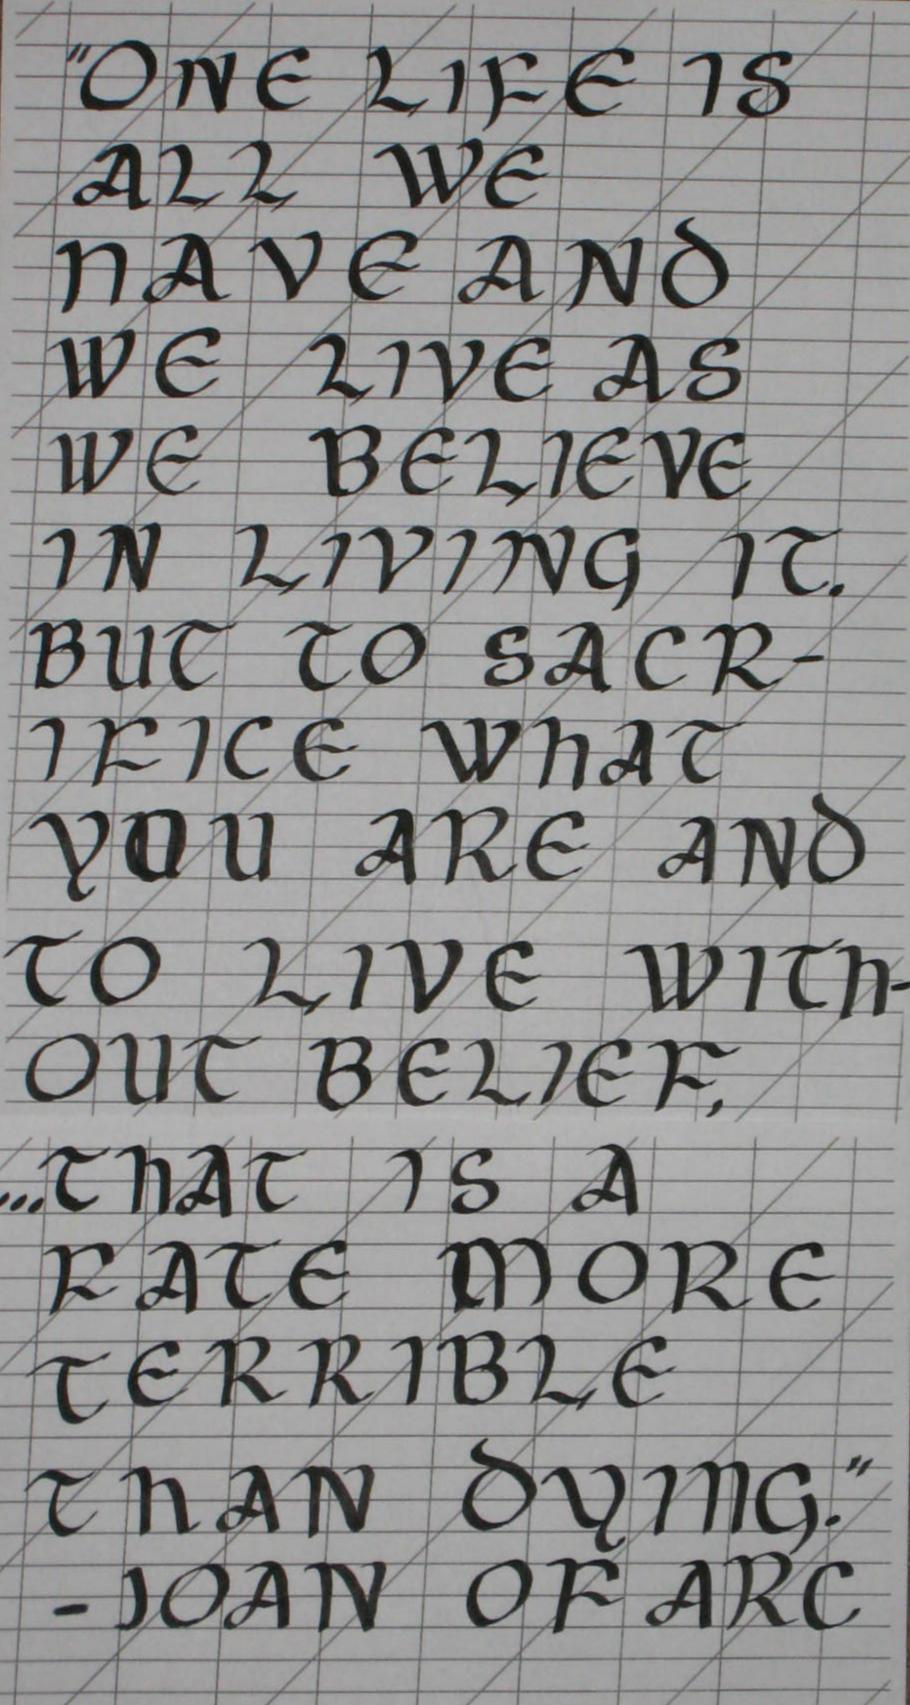 "ONE LIFE IS
ALL WE
HAVE AND
WE LIVE AS
WE BELIEVE
IN LIVING IT.
BUT TO SACR-
IFICE WHAT
YOU ARE AND
TO LIVE WITH-
OUT BELIEF,
...THAT IS A
FATE MORE
TERRIBLE
THAN DYING."
-JOAN OF ARC